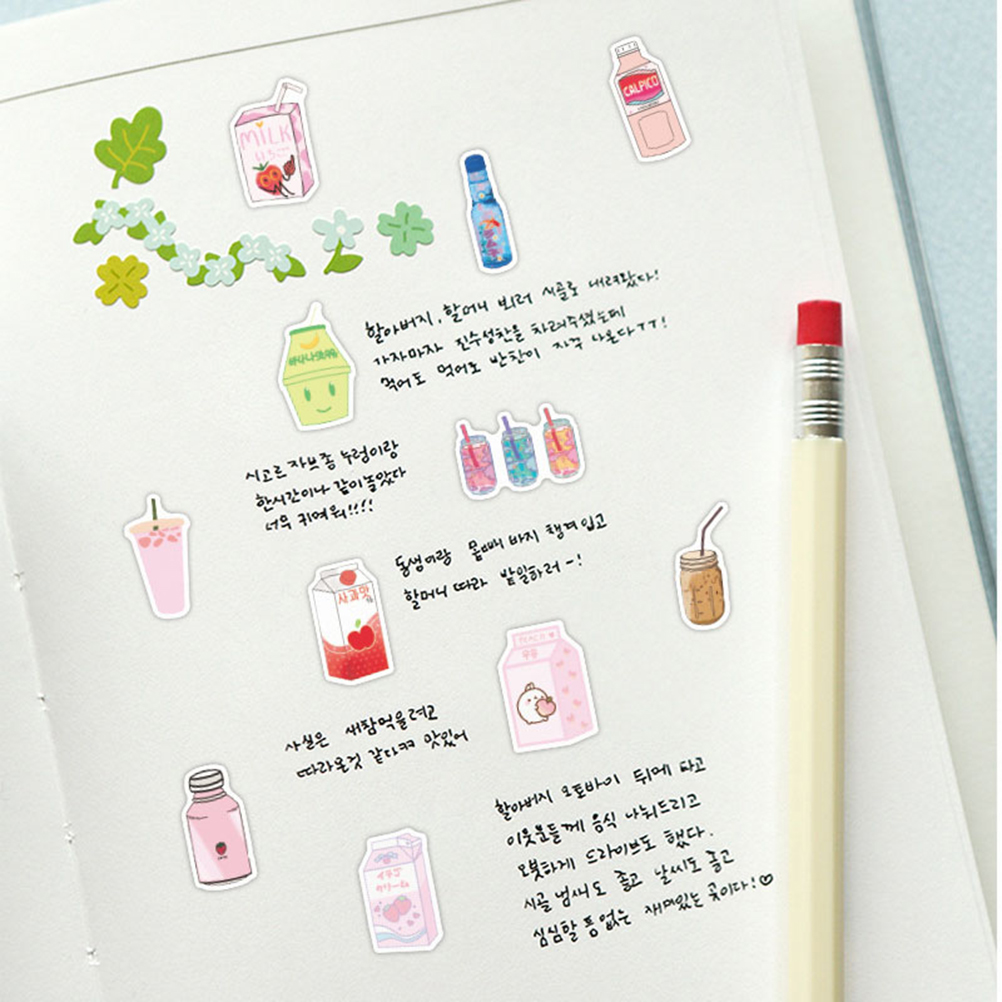 MILK
いちご
CALPICO
할아버지, 할머니 뵈러 시골로 내려왔다!
가자마자 진수성찬을 차려주셨는데
먹어도 먹어도 반찬이 자꾸 나온다ㅜㅜ!
바나나맛우유
시고르자브종 누렁이랑
한시간이나 같이놀았다
너무 귀여워!!!!
동생이랑 몸빼바지 챙겨입고
할머니 따라 밭일하러~!
사과맛
PEACH
우유
사실은 새참먹을려고
따라온것 같다ㅋㅋ 맛있어
할아버지 오토바이 뒤에 타고
이웃분들께 음식 나눠드리고
오붓하게 드라이브도 했다.
시골 냄새도 좋고 날씨도 좋고
심심할 틈없는 재미있는 곳이다!♡
イチゴ
クリーム